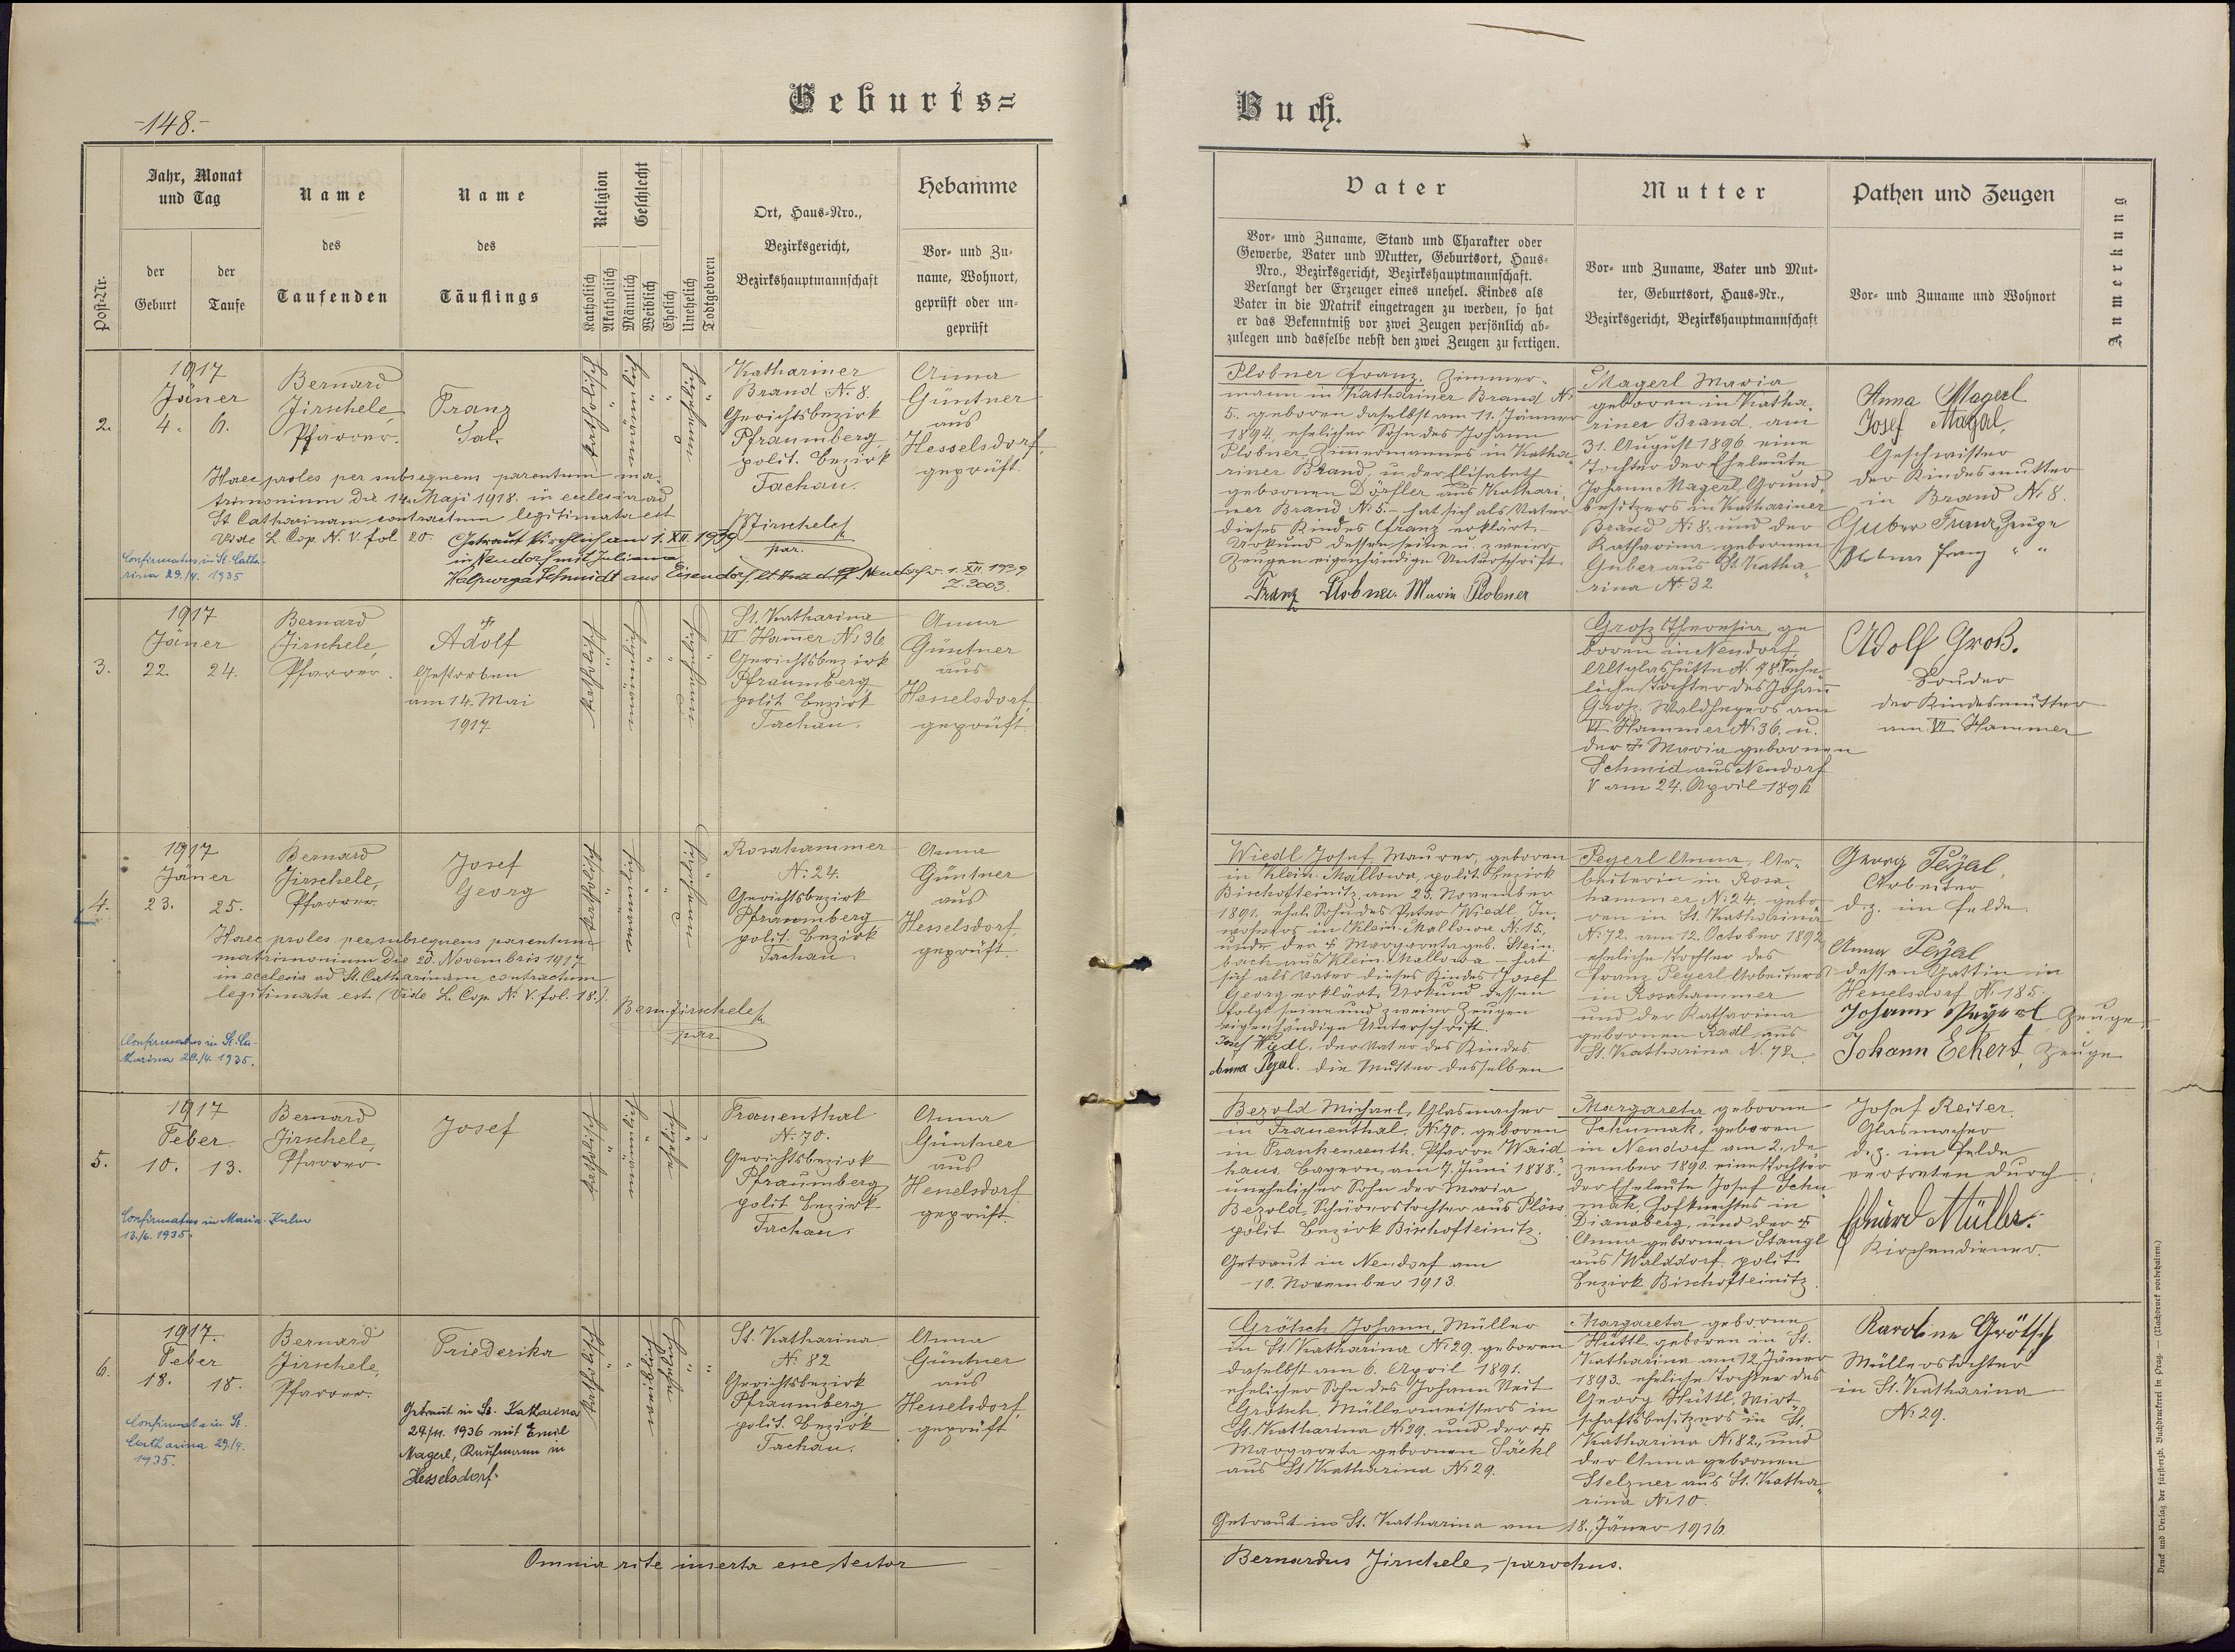 -148.-
Geburts=
Buch.
Post-Nr.
Jahr, Monat
und Tag
der
Geburt
der
Taufe
Name
des
Taufenden
Name
des
Täuflings
Religion
Katholisch
Akatholisch
Geschlecht
Männlich
Weiblich
Ehelich
Unehelich
Todtgeboren
Ort, Haus-Nro.,
Bezirksgericht,
Bezirkshauptmannschaft
Hebamme
Vor- und Zu-
name, Wohnort,
geprüft oder un-
geprüft
Vater
Vor- und Zuname, Stand und Charakter oder
Gewerbe, Vater und Mutter, Geburtsort, Haus-
Nro., Bezirksgericht, Bezirkshauptmannschaft.
Verlangt der Erzeuger eines unehel. Kindes als
Vater in die Matrik eingetragen zu werden, so hat
er das Bekenntniß vor zwei Zeugen persönlich ab-
zulegen und dasselbe nebst den zwei Zeugen zu fertigen.
Mutter
Vor- und Zuname, Vater und Mut-
ter, Geburtsort, Haus-Nr.,
Bezirksgericht, Bezirkshauptmannschaft
Pathen und Zeugen
Vor- und Zuname und Wohnort
Anmerkung
2.
1917
Jäner
4. 6.
Bernard
Jirschele
Pfarrer.
Franz
Sal.
katholisch
männlich
unehelich
Kathariner
Brand N. 8.
Gerichtsbezirk
Pfraumberg
polit. Bezirk
Tachau.
Anna
Güntner
aus
Hesselsdorf,
geprüft.
Haec proles per subsequens parentum ma-
trimonium die 14. Maji 1918. in ecclesia ad
St Catharinam contractum legitimata est
Vide L. Cop. N. V. fol 20.
BJirschele
par.
Getraut kirchlich am 1. XII. 1939
in Neudorf mit Juliana
Walpurga Schmidt aus Eisendorf Neudorf v. 1. XII. 1939
Z. 2003.
Confirmatus in St. Catha-
rina 29./4. 1935
Plobner Franz, Zimmer-
mann in Kathariner Brand N.
5. geboren daselbst am 11. Jänner
1894, ehelicher Sohn des Johann
Plobner, Zimmermannes in Katha-
riner Brand, u. der Elisabeth
geborenen Dörfler aus Kathari-
ner Brand N. 5. - hat sich als Vater
dieses Kindes Franz erklärt.
Urkund dessen seine u. zweier
Zeugen eigenhändige Unterschrift.
Franz Plobner. Maria Plobner
Magerl Maria
geboren in Katha-
riner Brand am
31. August 1896 eine
Tochter der Eheleute
Johann Magerl, Grund-
besitzers in Kathariner
Brand N. 8. und der
Katharina geborenen
Guber aus St. Katha-
rina N. 32
Anna Magerl
Josef Magal,
Geschwister
der Kindesmutter
in Brand N. 8.
Guber Franz, Zeuge
Plobner Franz " "
3.
1917
Jäner
22. 24.
Bernard
Jirschele,
Pfarrer.
Adolf
Gestorben
am 14. Mai
1917
katholisch
männlich
unehelich
St. Katharina
VI Hammer N. 36
Gerichtsbezirk
Pfraumberg
polit Bezirk
Tachau.
Anna
Güntner
aus
Hesselsdorf,
geprüft.
Groß Theresia, ge
boren in Neudorf,
Altglashütte N. 48. ehe-
liche Tochter des Johann
Groß. Waldhegers am
VI Hammer N. 36. u.
der Maria geborenen
Schmid aus Neudorf
am 24. April 1896
Adolf Groß.
Bruder
der Kindesmutter
am VI Hammer
4.
1917
Jäner
23. 25.
Bernard
Jirschele,
Pfarrer
Josef
Georg
katholisch
männlich
unehelich
Rosahammer
N. 24.
Gerichtsbezirk
Pfraumberg
polit. Bezirk
Tachau
Anna
Güntner
aus
Hesselsdorf,
geprüft.
Haec proles per subsequens parentum
matrimonium die 20. Novembris 1917
in ecclesia ad St. Catharinam contractum
legitimata est (Vide L. Cop. N. V. fol. 18.).
Bern. Jirschele
par.
Confirmatus in St. Ca-
tharina 29./4. 1935.
Wiedl Josef, Maurer, geboren
in Klein-Mallowa, polit. Bezirk
Bischofteinitz am 25. November
1891, ehel. Sohn des Peter Wiedl, In-
wohners in Klein-Mallowa N. 15.
und der Margareta geb. Stein-
bach aus Klein-Mallowa - hat
sich als Vater dieses Kindes Josef
Georg erklärt. Urkund dessen
folgt seine und zweier Zeugen
eigenhändige Unterschrift.
Josef Wiedl, der Vater des Kindes
Anna Pejal. die Mutter desselben
Peyerl Anna, Ar-
beiterin in Rosa-
hammer N. 24. gebo-
ren in St. Katharina
N. 72. am 12. October 1892
eheliche Tochter des
Franz Peyerl Arbeiters
in Rosahammer
und der Katharina
geborenen Radl aus
St. Katharina N. 72.
Georg Pejal,
Arbeiter
d. z. im Felde
Anna Pejal
dessen Gattin in
Hesselsdorf N. 185.
Johann Peyerl, Zeuge
Johann Eckert, Zeuge
5.
1917
Feber
10. 13.
Bernard
Jirschele,
Pfarrer
Josef
katholisch
männlich
ehelich
Frauenthal
N. 70.
Gerichtsbezirk
Pfraumberg
polit Bezirk
Tachau.
Anna
Güntner
aus
Hesselsdorf
geprüft.
Confirmatus in Maria-Kulm
13./6. 1935.
Bezold Michael, Glasmacher
in Frauenthal, N. 70. geboren
in Frankenreuth. Pfarre Waid
haus, Bayern, am 7. Juni 1888.,
unehelicher Sohn der Maria
Bezold, Schürerstochter aus Plöss
polit Bezirk Bischofteinitz.
Getraut in Neudorf am
-10. November 1913.
Margareta geborne
Schumak, geboren
in Neudorf am 2. De-
zember 1890. eine Tochter
der Eheleute Josef Schu
mak, Hofknechtes in
Dianaberg, und der
Anna geborenen Stangl
aus Walddorf, polit.
Bezirk Bischofteinitz.
Josef Reiter,
Glasmacher
d. z. im Felde
vertreten durch
Eduard Müller.
Kirchendiener.
6.
1917.
Feber
18. 18.
Bernard
Jirschele,
Pfarrer.
Friederika
Getraut in St. Katharina
24/11. 1936 mit Emil
Magerl, Kaufmann in
Hesselsdorf.
katholisch
weiblich
ehelich
St. Katharina
N. 82
Gerichtsbezirk
Pfraumberg
polit. Bezirk
Tachau.
Anna
Güntner
aus
Hesselsdorf,
geprüft
Confirmata in St.
Catharina 29./4.
1935.
Grötsch Johann, Müller
in St. Katharina N. 29. geboren
daselbst am 6. April 1891.
ehelicher Sohn des Johann Veit
Grötsch, Müllermeisters in
St. Katharina N. 29. und der
Margareta geborenen Säckl
aus St. Katharina N. 29.
Getraut in St. Katharina am 18. Jäner 1916.
Margareta geborne
Hüttl, geboren in St.
Katharina am 12. Jäner
1893. eheliche Tochter des
Georg Hüttl, Wirt-
schaftsbesitzers in St.
Katharina N. 82., und
der Anna geborenen
Stelzner aus St. Katha-
rina N. 10.
Karoline Grötsch
Müllerstochter
in St. Katharina
N. 29.
Omnia rite inserta esse testor
Bernardus Jirschele, parochus.
Druck und Verlag der fürsterzb. Buchdruckerei in Prag. — (Nachdruck vorbehalten.)